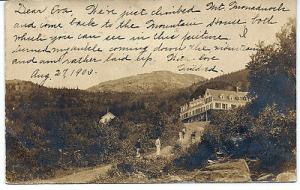 Dear Eva, We've just climbed Mt Monadnock
and come back to the Mountain House both
which you can see in this picture. I
turned my ankle coming down the mountain
and am rather laid up. Her love
Aug. 27, 1906. Mildred.